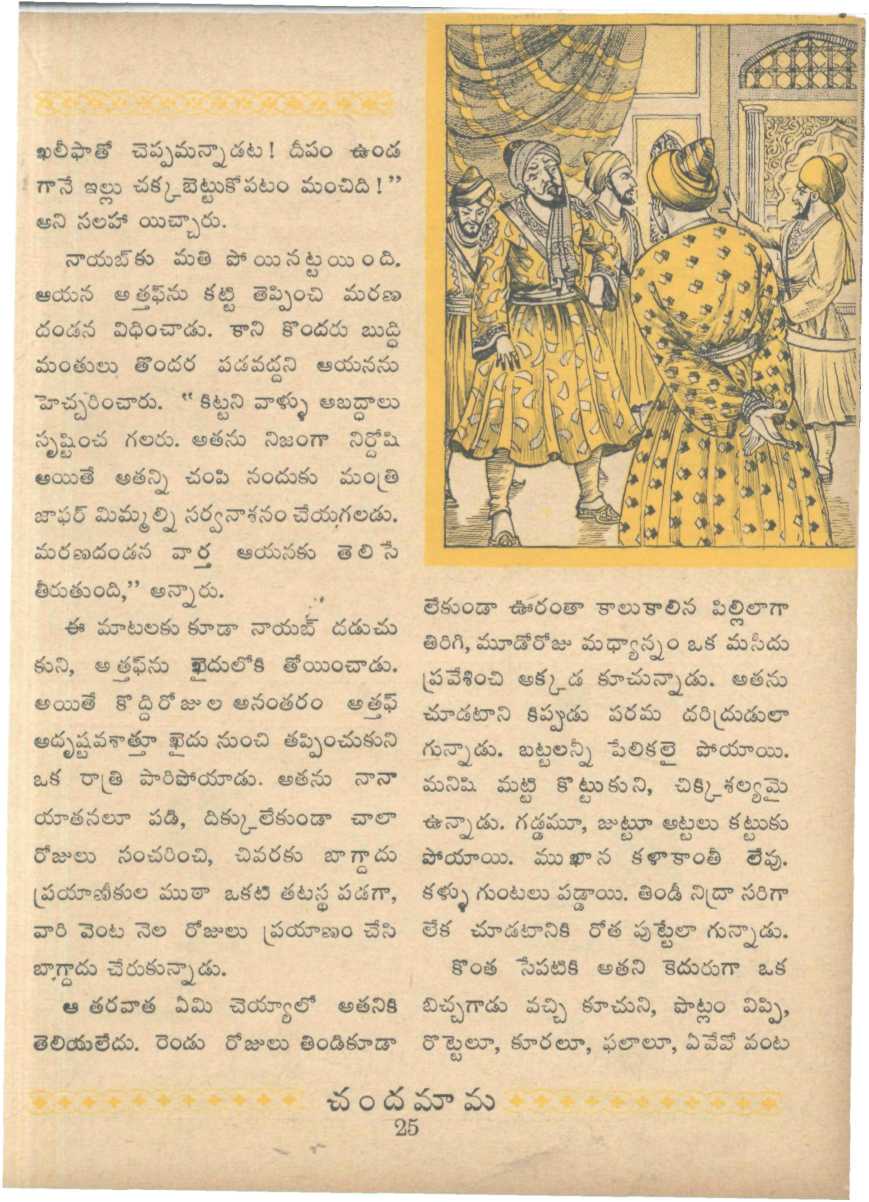 ఖలీఫాతో చెప్పమన్నాడట! దీపం ఉండ
గానే ఇల్లు చక్కబెట్టుకోపటం మంచిది!”
అని సలహా యిచ్చారు.
నాయబ్‌కు మతి పోయినట్టయింది.
ఆయన అత్తఫ్‌ను కట్టి తెప్పించి మరణ
దండన విధించాడు. కాని కొందరు బుద్ధి
మంతులు తొందర పడవద్దని ఆయనను
హెచ్చరించారు. “కిట్టని వాళ్ళు అబద్ధాలు
సృష్టించ గలరు. అతను నిజంగా నిర్దోషి
అయితే అతన్ని చంపి నందుకు మంత్రి
జాఫర్ మిమ్మల్ని సర్వనాశనం చేయగలడు.
మరణదండన వార్త ఆయనకు తెలిసే
తీరుతుంది,” అన్నారు.
ఈ మాటలకు కూడా నాయబ్ దడుచు
కుని, అత్తఫ్‌ను ఖైదులోకి తోయించాడు.
అయితే కొద్దిరోజుల అనంతరం అత్తఫ్
అదృష్టవశాత్తూ ఖైదు నుంచి తప్పించుకుని
ఒక రాత్రి పారిపోయాడు. అతను నానా
యాతనలూ పడి, దిక్కులేకుండా చాలా
రోజులు సంచరించి, చివరకు బాగ్దాదు
ప్రయాణీకుల ముఠా ఒకటి తటస్థ పడగా,
వారి వెంట నెల రోజులు ప్రయాణం చేసి
బాగ్దాదు చేరుకున్నాడు.
ఆ తరవాత ఏమి చెయ్యాలో అతనికి
తెలియలేదు. రెండు రోజులు తిండికూడా
లేకుండా ఊరంతా కాలుకాలిన పిల్లిలాగా
తిరిగి, మూడోరోజు మధ్యాన్నం ఒక మసీదు
ప్రవేశించి అక్కడ కూచున్నాడు. అతను
చూడటాని కిప్పుడు పరమ దరిద్రుడులా
గున్నాడు. బట్టలన్నీ పేలికలై పోయాయి.
మనిషి మట్టి కొట్టుకుని, చిక్కిశల్యమై
ఉన్నాడు. గడ్డమూ, జుట్టూ అట్టలు కట్టుకు
పోయాయి. ముఖాన కళాకాంతీ లేవు.
కళ్ళు గుంటలు పడ్డాయి. తిండీ నిద్రా సరిగా
లేక చూడటానికి రోత పుట్టేలా గున్నాడు.
కొంత సేపటికి అతని కెదురుగా ఒక
బిచ్చగాడు వచ్చి కూచుని, పొట్లం విప్పి,
రొట్టెలూ, కూరలూ, ఫలాలూ, ఏవేవో వంట
చందమామ
25